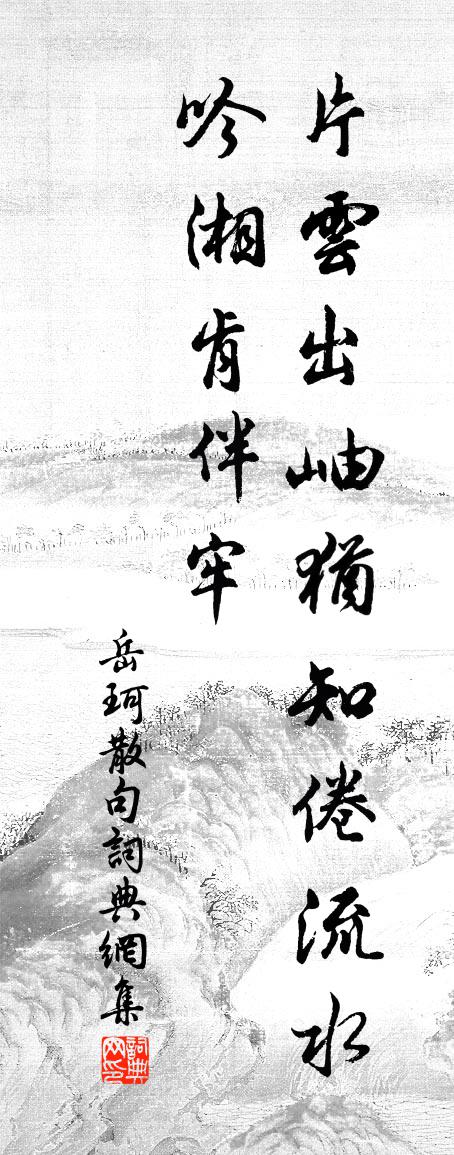 片雲出岫猶知倦流水
吟湘肯伴牢
岳珂散句詞典網集
詞典网印